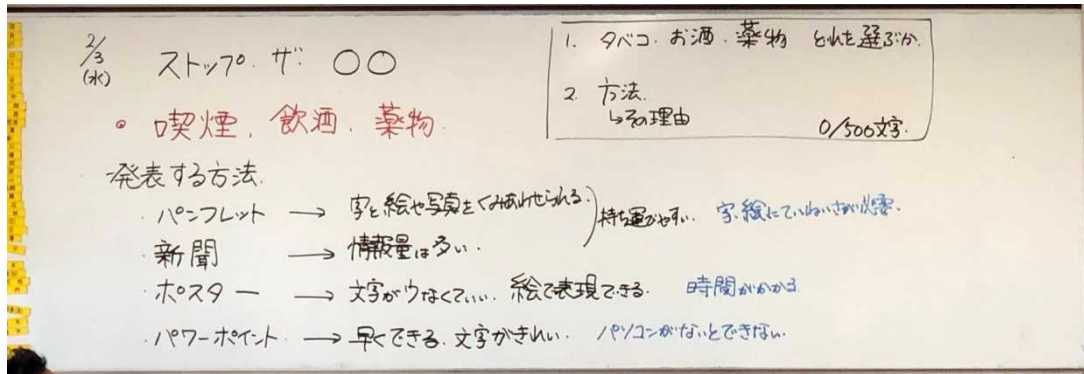 2/3
(水)
ストップ・ザ・〇〇
・喫煙、飲酒、薬物
1. タバコ・お酒・薬物 どれを選ぶか
2. 方法
↳その理由
0/500文字
発表する方法
・パンフレット → 字と絵や写真をくみあわせられる。 持ち運びやすい。 字、絵にていねいさが必要。
・新聞 → 情報量は多い。
・ポスター → 文字が少なくていい。絵で表現できる。 時間がかかる
・パワーポイント → 早くできる。文字がきれい。 パソコンがないとできない。